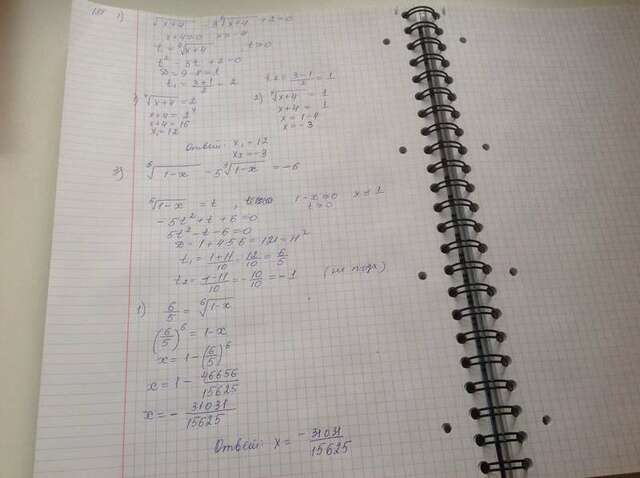 1) √x+4 - 3 ⁴√x+4 + 2=0
x+4≥0 x≥-4
t = ⁴√x+4 t≥0
t² - 3t + 2=0
D = 9-8=1
t₁ = 3+1/2 = 2 t₂ = 3-1/2 = 1
1) ⁴√x+4 = 2 2) ⁴√x+4 = 1
x+4 = 2⁴ x+4 = 1
x+4 = 16 x = 1-4
x₁=12 x = -3
Ответ: x₁=12
x₂=-3
3) ⁶√1-x - 5 ³√1-x = -6
⁶√1-x = t , 1-x≥0 x≤1
t≥0
-5t²+t+6=0
5t²-t-6=0
D=1+4·5·6=121=11²
t₁ = 1+11/10 = 12/10 = 6/5
t₂ = 1-11/10 = -10/10 = -1 (не подх)
1) 6/5 = ⁶√1-x
(6/5)⁶ = 1-x
x = 1-(6/5)⁶
x = 1 - 46656/15625
x = - 31031/15625
Ответ: x = -31031/15625